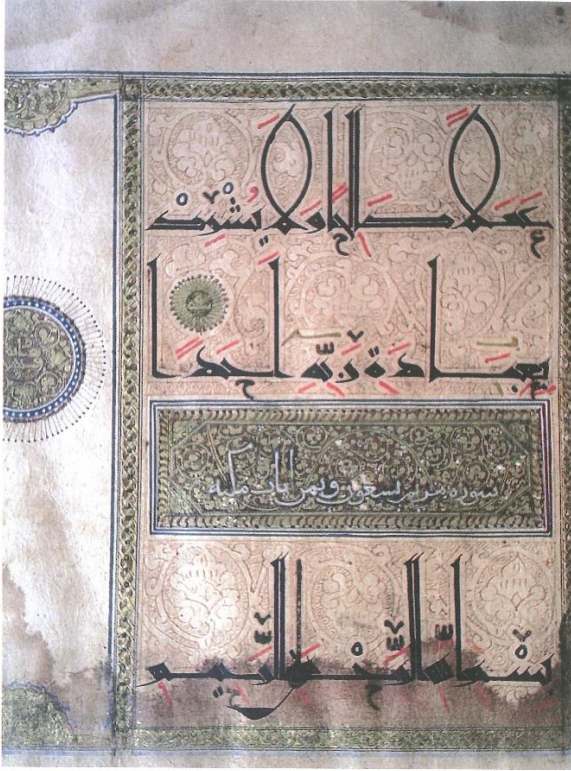 عَمَلًا صَالِحًا وَلَا يُشْرِكْ
بِعِبَادَةِ رَبِّهِ أَحَدًا
سورة مريم تسعون وثمن ايات مكية
بِسْمِ اللَّهِ الرَّحْمَٰنِ الرَّحِيمِ